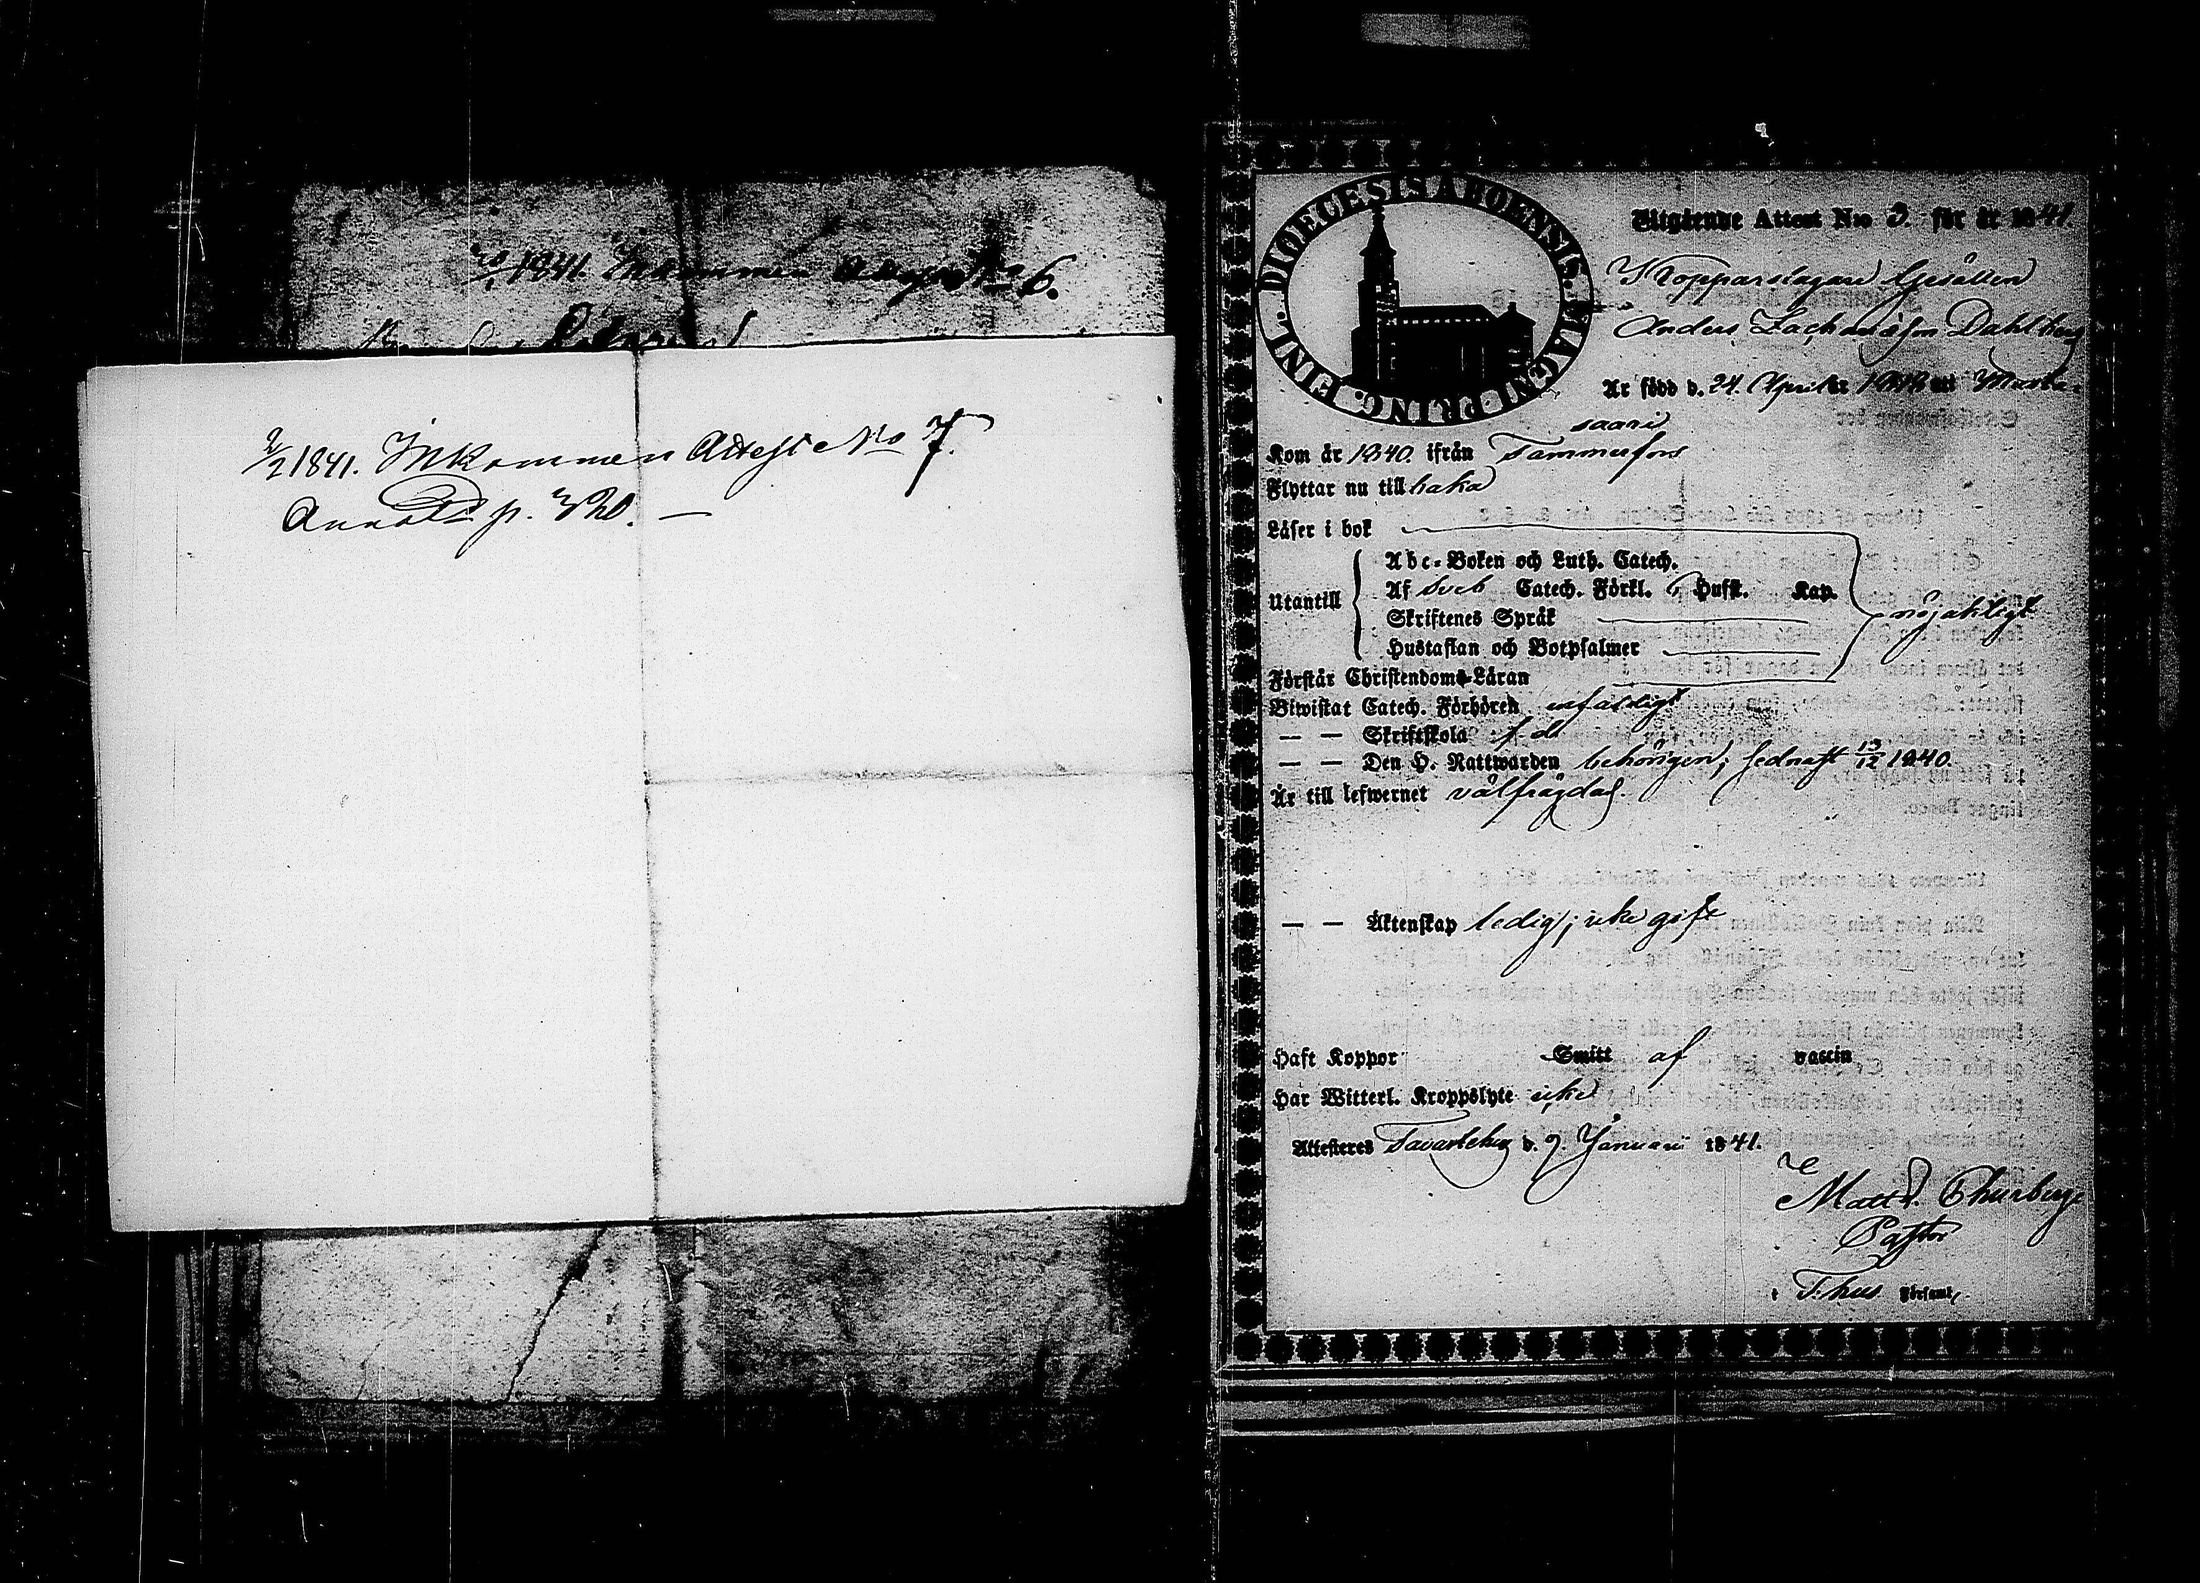 1841. Inkommen No 6.
2/2 1841. Inkommen Attest No 7.
p. 320. —
DIOECESIS ABOENSIS. MAGNI PRINC. FINL.
Utgående Attest N:o 3. för år 1841.
Kopparslagare Gesällen
Anders Zachariasson Dahlberg
Är född d. 24. April år i Musta-
saari
Kom år 1840. ifrån Tammerfors
Flyttar nu till
Läser i bok
Abc-Boken och Luth. Catech.
Utantill Af Sveb Catech. Förkl. Hufst. Kap.
Skriftenes Språk
nöjaktigt
Hustaflan och Botpsalmer
Förstår Christendoms-Läran
Biwistat Catech. Förhören
— — Skriftskola
— — Den H. Nattwarden behörigen; sednast 13/12 1840.
Är till lefwernet välfrägdad.
— — Äktenskap ledig; icke gift
Haft Koppor Smitt af vaccin
Har Witterl. Kroppslyte icke
Attesteras Tavastehus d. 9. Januari 1841.
Matt. Thurberg
Pastor
i T:hus Församl.